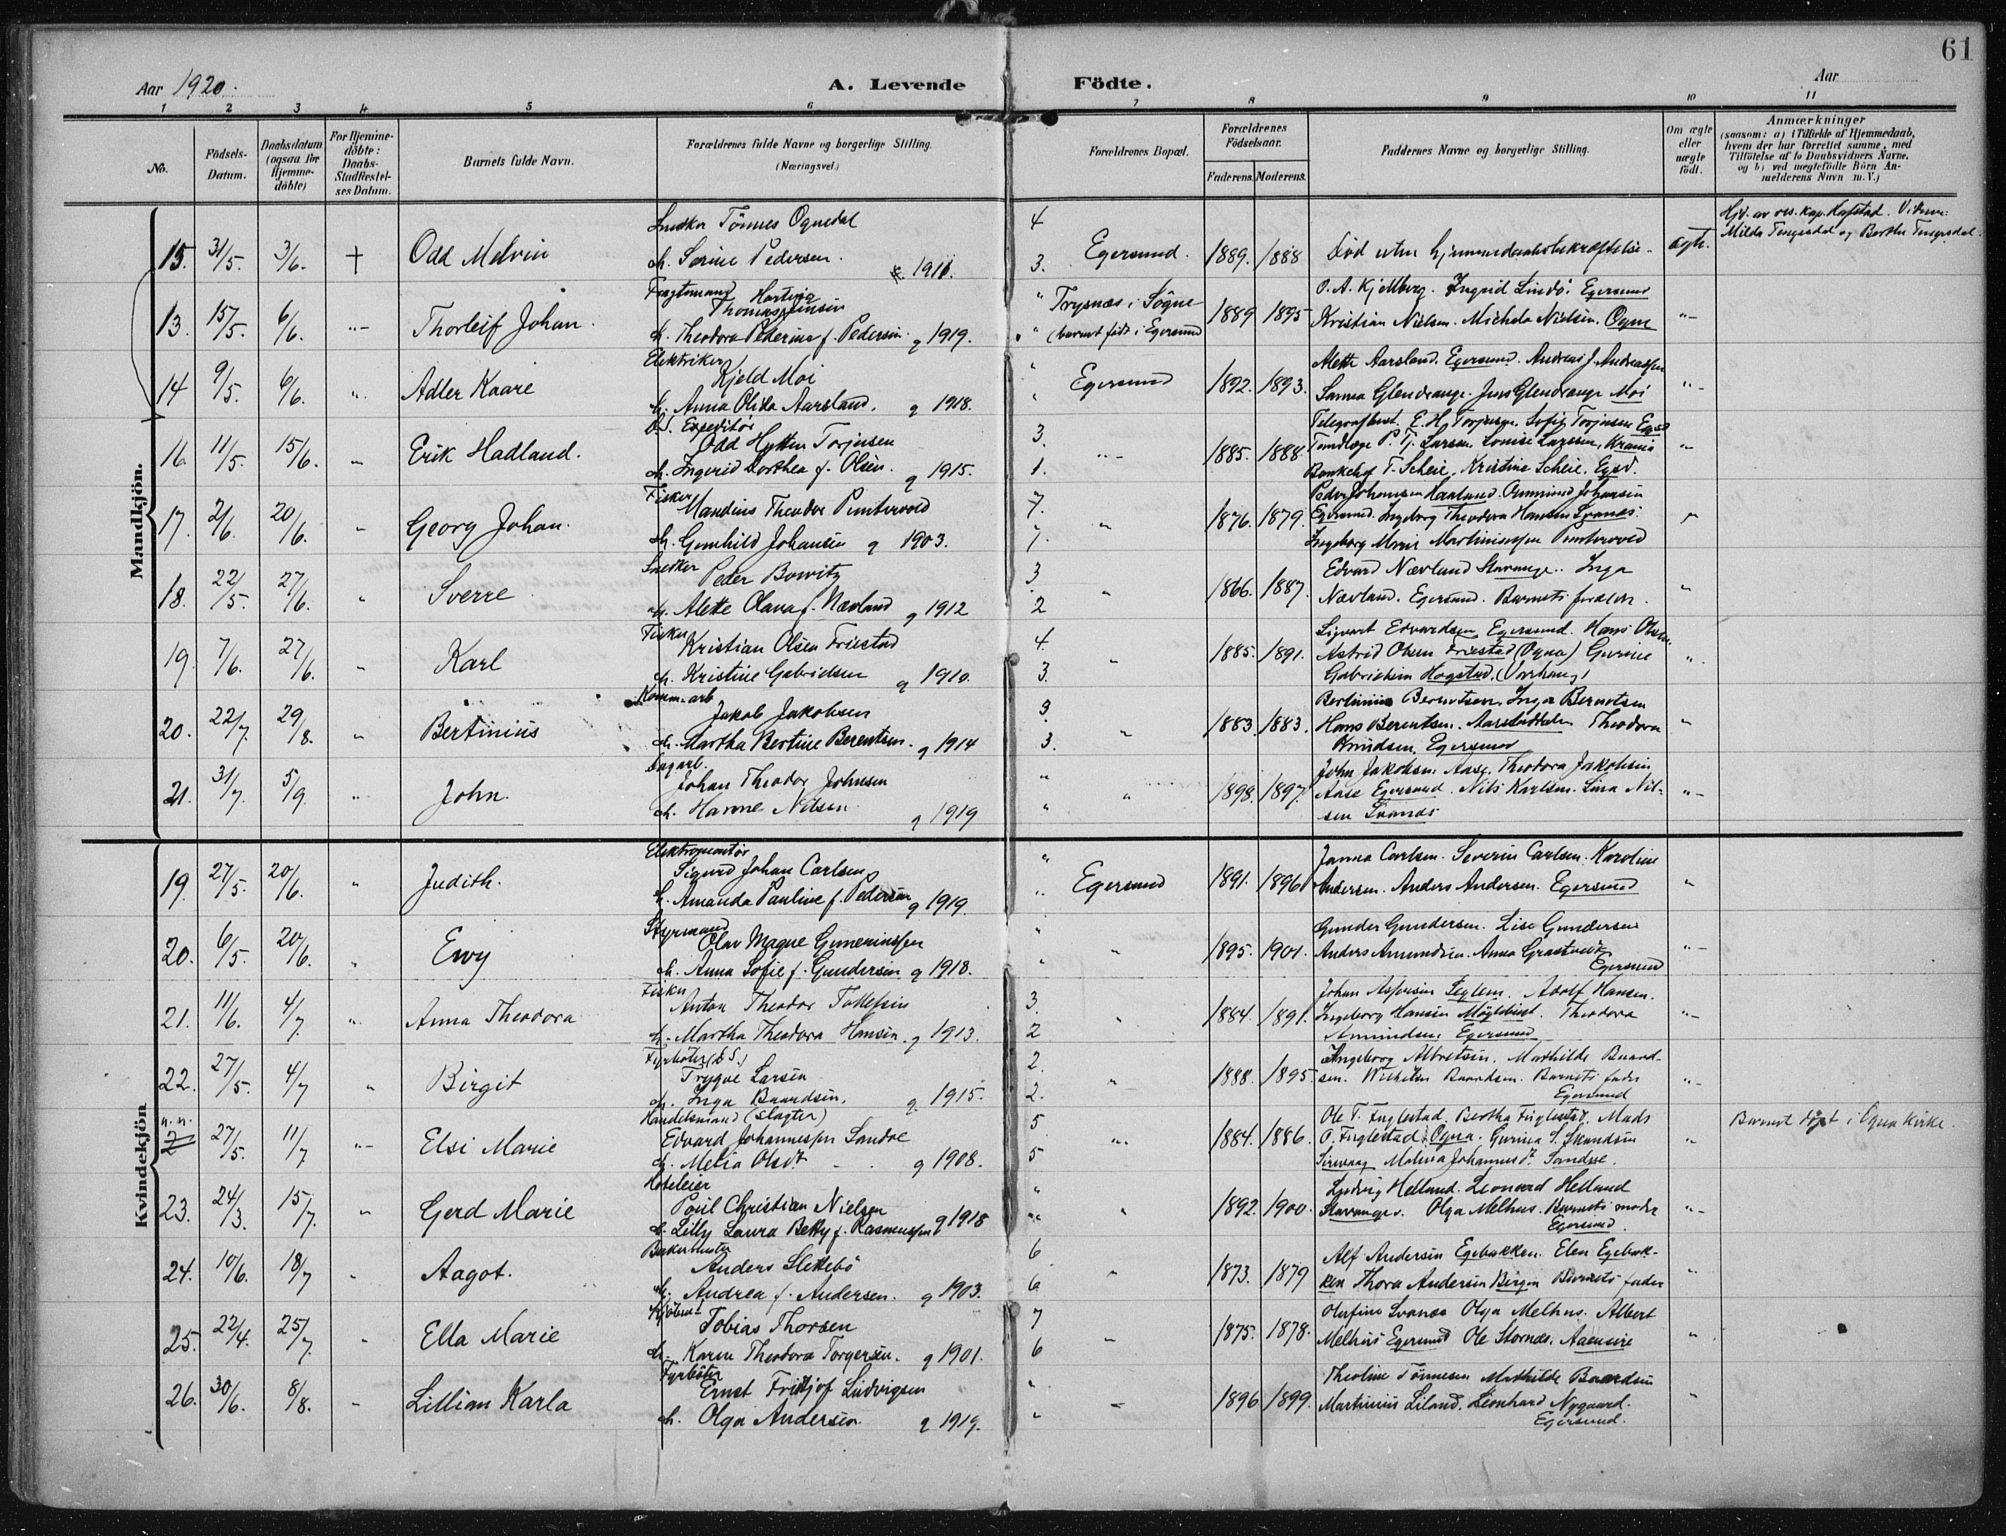 61
Aar 1920.
A. Levende Födte.
Aar
1 2 3 4 5 6 7 8 9 10 11
No.
Födsels-Datum.
Daabsdatum (ogsaa for Hjemmedöbte)
For Hjemmedöbte: Daabs-Stadfæstelses Datum.
Barnets fulde Navn.
Forældrenes fulde Navne og borgerlige Stilling.
(Næringsvei.)
Forældrenes Bopæl.
Forældrenes Födselsaar.
Faderens. Moderens.
Faddernes Navne og borgerlige Stilling.
Om ægte eller uægte födt.
Anmærkninger
(saasom: a) i Tilfælde af Hjemmedaab,
hvem der har forrettet samme, med
Tilföielse af to Daabsvidners Navne.
og b) ved uægtefödte Börn An-
melderens Navn m. V.)
Mandkjön.
Snedker Tönnes Ognedal 4 Hjd. av res. kap. Hafstad. Vidner:
15. 31/5. 3/6. + Odd Melvin h. Serine Pedersen. 1911. 3. Egersund. 1889. 1888 Död uten hjemmedaabsbekræftelse ægte. Milda Tengesdal og Berthe Tengesdal.
Fragtemand Hartvig Thomas Jensen " Trysnæs i Sögne O. A. Kjelberg. Ingrid Lindö. Egersund
13. 15/5. 6/6. " Thorleif Johan. h. Theodora Pederine f. Pedersen. g 1919. " (barnet född i Egersund 1889 1895 Kristian Nielsen. Michela Nielsen. Ogne "
Elektriker Kjeld Moi " Alette Aarsland. Egersund. Andreas J. Andreassen
14 9/5. 6/6. " Adler Kaare h. Anna Olida Aarsland. g 1918. " Egersund 1892. 1893. Sanna Glendrange. Jens Glendrange Moi "
D.S. Expeditör Odd Hytten Torjusen 3. Telegrafbest. E. H. Torjusen. Sofie Torjusen Egsd
16. 11/5. 15/6. " Erik Hadland. h. Ingerid Dorthea f. Olsen. g 1915. 1. " 1885. 1888 Tandlæge P. Tj. Larsen Louise Larssen, Krania "
Bankchef T. Scheie, Kristine Scheie. Egsd.
Fisker Mandius Theodor Puntervold 7. Peder Johansen Haaland. Ommund Johansen
17. 2/6. 20/6. " Georg Johan. h. Gunhild Johansen g 1903. 7. " 1876. 1879. Egersund. Ingeborg Theodora Hansen Svanes. "
Ingeborg Marie Martiniussen Puntervold
Snedker Peder Bowitz 3. Edvard Nævland Stavanger. Inga
18. 22/5. 27/6. " Sverre h. Alette Olava f. Nævland g 1912 2 " 1866. 1887. Nævland. Egersund. Barnets forældre. "
Fisker Kristian Olsen Friestad 4. Sigvart Edvardsen Egersund. Hans Olsen
19. 7/6. 27/6. " Karl h. Kristine Gabrielsen g 1910. 3. " 1885. 1891. Astrid Olsen Friestad (Ogna) Gurine "
Gabrielsen Hogstad. (Varhaug)
Komm.arb Jakob Jakobsen 3. Bertinius Berentsen. Inga Berntsen
20. 22/7. 29/8. " Bertinius h. Martha Bertine Berentsen. g 1914 3. " 1883. 1883. Hans Berentsen. Aarstaddalen Theodora "
Knudsen, Egersund
Dagarb. Johan Theodor Johnsen " John Jakobsen Aase. Theodora Jakobsen
21. 31/7. 5/9. " John. h. Hanne Nilsen. g 1919 " " 1898. 1897. Aase Egersund. Nils Karlsen. Lina Nil- "
sen Svanes
Kvindekjön
Elektromontör Sigurd Johan Carlsen " Janna Carlsen. Severin Carlsen. Karoline
19. 27/5. 20/6. " Judith. h. Amanda Pauline f. Pedersen g 1919. " Egersund 1891. 1896 Andersen. Anders Andersen. Egersund "
Styrmand Olav Magne Gumeriussen " Gunder Gundersen. Lise Gundersen
20. 6/5. 20/6. " Ewy h. Anna Sofie f. Gundersen g 1918. " " 1895. 1901. Anders Amundsen. Anna Grastveit "
Egersund
Fisker Anton Theodor Tollefsen 3. Johan Aspersen Seglem. Adolf Hansen.
21. 11/6. 4/7. " Anna Theodora h. Martha Theodora Hansen. g 1913. 2 " 1884. 1891. Ingeborg Hansen Möglebust. Theodora "
Amundsen, Egersund
Fyrböter (D.S.) Trygve Larsen 2. Ingeborg Albretsen. Mathilde Baard-
22. 27/5. 4/7 " Birgit h. Inga Baardsen. g 1915. 2. " 1888. 1895. sen. Wilhelm Baardsen. Barnets fader "
Egersund
Handelsmand (slagter) Edvard Johannessen Sandve 5 Ole T. Fuglestad, Bertha Fuglestad, Mads
n.n. 2 27/5. 11/7 " Elsi Marie h. Melia Olsdt. g 1908. 5 " 1884. 1886. O. Fuglestad. Ogna. Gurina S. Skandsen " Barnet döpt i Ogna kirke.
Sirevaag Malina Johannesd. Sandve.
Hoteleier Poul Christian Nielsen " Ludvig Helland. Leonard Helland
23. 24/3. 15/7. " Gerd Marie h. Lilly Laura Betty f. Rasmussen g 1918 " " 1892. 1900. Stavanger. Olga Melhus. Barnets moder "
Egersund.
Bakermester Anders Slettebö 6 Alf Andersen Egebakken. Elen Egebak-
24. 10/6. 18/7 " Aagot. h. Andrea f. Andersen. g 1903. 6 " 1873. 1879 ken Thora Andersen Bergen Barnets fader "
Tobias Thorsen 7 Olufine Svanes Olga Melhus. Albert
25. 22/4. 25/7. " Ella Marie h. Karen Theodora Torgersen. g 1901. 6 " 1875. 1878. Melhus Egersund Ole Stornæs. Aaensire "
Fyrböter Ernst Fridtjof Ludvigsen " Theoline Tönnesen Mathilde Baardsen
26. 30/6. 8/8. " Lillian Karla h. Olga Andersen g 1919. " " 1896 1899. Martinius Liland. Leonhard Nygaard. "
Egersund.